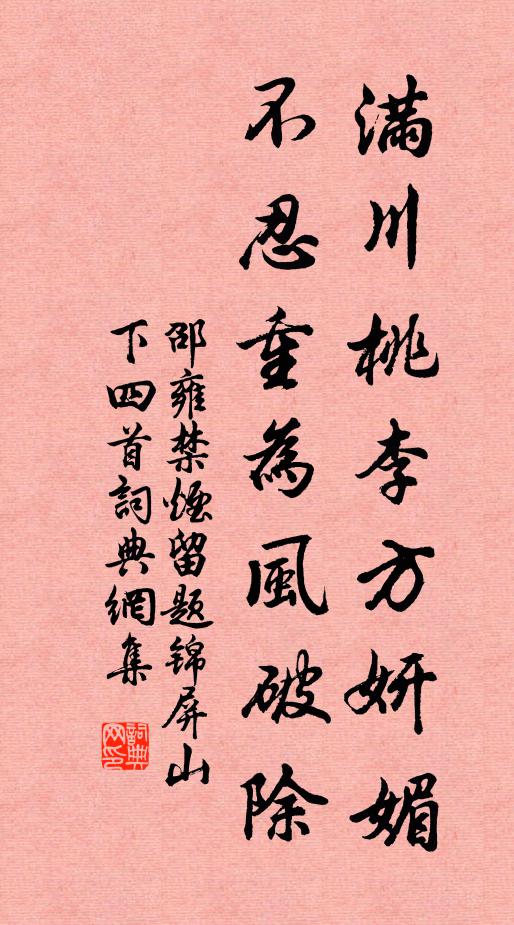 滿川桃李方妍媚
不忍重為風破除
邵雍禁煙留题锦屏山
下四首詞典網集
詞典
网印